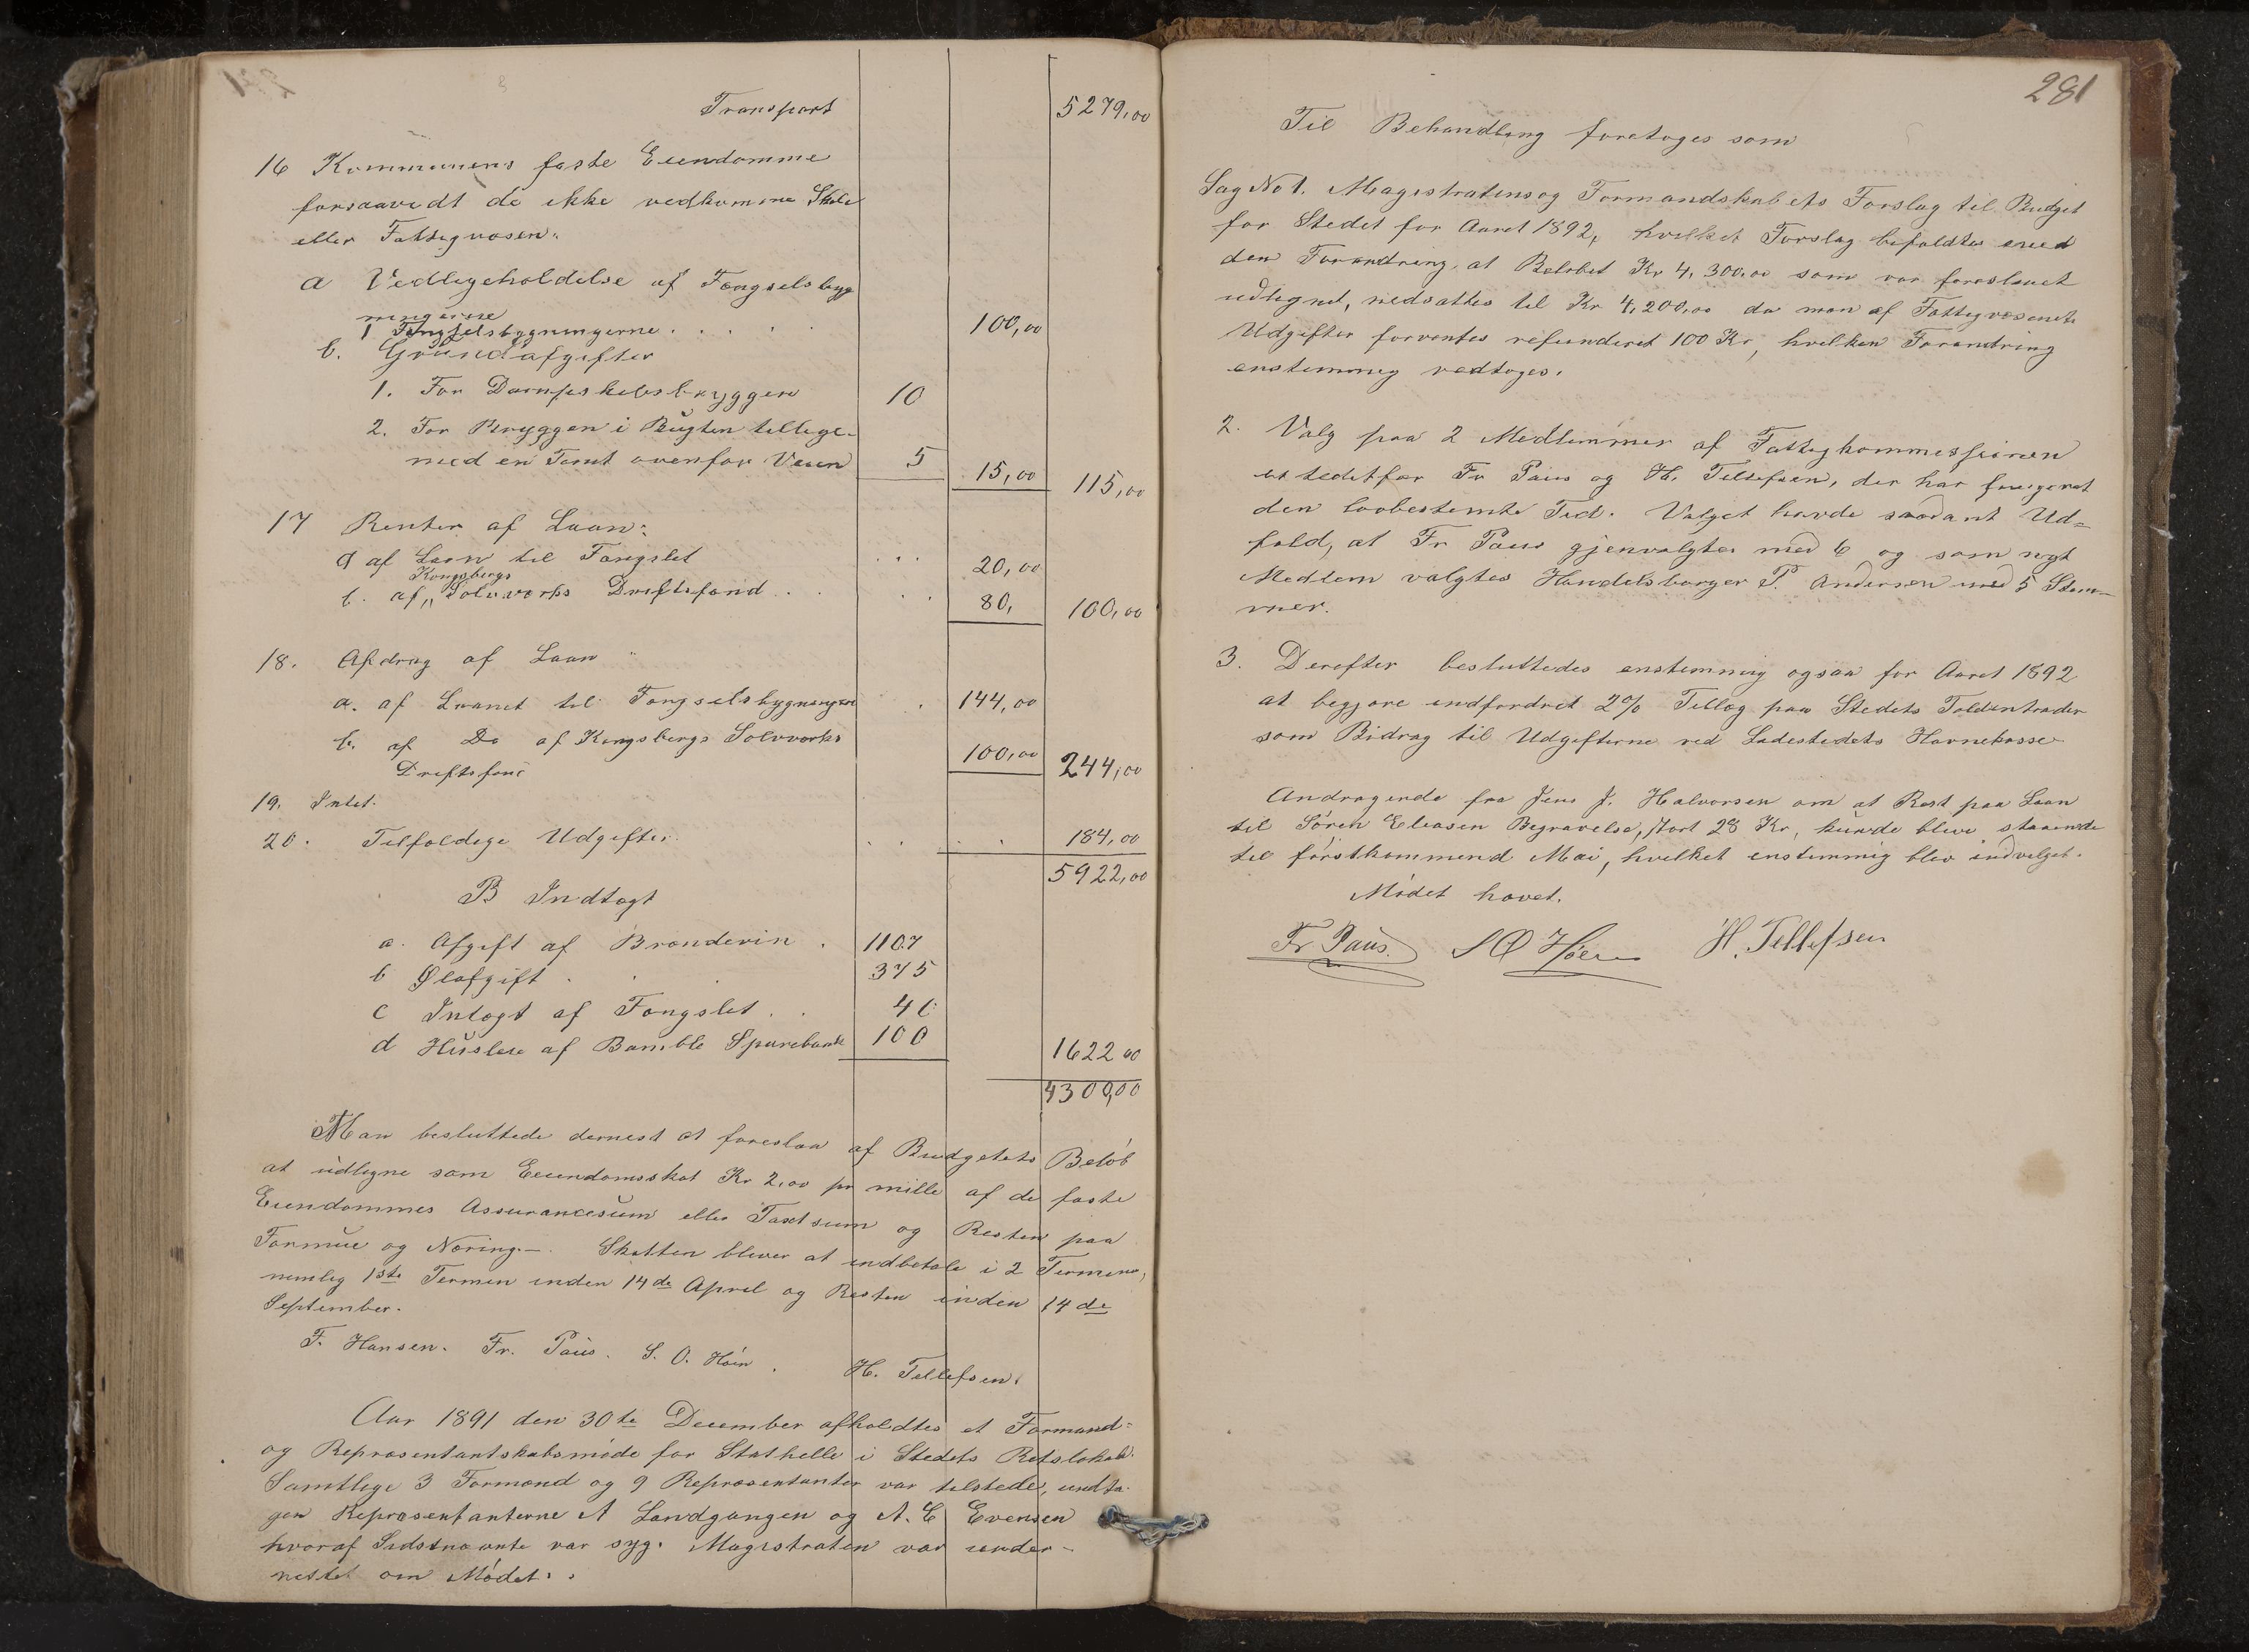 Transport 5279,00
16 Kommunens faste Eiendomme
forsaavidt de ikke vedkomme Skole
eller Fattigvæsen:
a Vedligeholdelse af Fængselsbyg
ningerne
1 Fængselsbygningerne . . . . . 100,00
b. Grundafgifter
1. For Dampskibsbryggen 10
2. For Bryggen i Bugten tillige-
med en Tomt ovenfor Veien 5 15,00 115,00
17 Renter af Laan:
a af Laan til Fængslet . . 20,00
Kongsbergs
b. af " Sølvværks Driftsfond . . . . 80, 100,00
18. Afdrag af Laan
a. af Laanet til Fængselsbygningen . 144,00
b. af Do af Kongsbergs Sølvværks
Driftsfond 100,00 244,00
19. Intet.
20. Tilfældige Udgifter. . . . 184,00
5922,00
B Indtægt
a. Afgift af Brændevin . 1107
b Ølafgift . . . 375
c Intægt af Fængslet . . 40
d Husleie af Bamble Sparebank 100 1622 00
4300,00
Man besluttede dernest at foreslaa af Budgetets Beløb
at udligne som Eiendomsskat Kr 2,00 pr mille af de faste
Eiendommes Assurancesum eller Taxtsum og Resten paa
Formue og Næring.–. Skatten bliver at indbetale i 2 Terminer,
nemlig 1ste Termin inden 14de April og Resten inden 14de
September.
F. Hansen. Fr. Paus. S. O. Høen. H. Tellefsen.
Aar 1891 den 30te December afholdtes et Formand=
og Repræsentantskabsmøde for Stathelle i Stedets Retslokal.
Samtlige 3 Formænd og 9 Repræsentanter var tilstede, undta-
gen Repræsentanterne A Landgangen og A. E Evensen
hvoraf Sidstnævnte var syg. Magistraten var under-
rettet om Mødet.
281
Til Behandling foretoges som
Sag No 1. Magistratens og Formandskabets Forslag til Budget
for Stedet for Aaret 1892, hvilket Forslag bifaldtes med
den Forandring, at Beløbet Kr 4,300,00 som var foreslaaet
udlignet, nedsattes til Kr 4,200,00 da man af Fattigvæsenets
Udgifter forventes refunderet 100 Kr, hvilken Forandring
enstemmig vedtoges.
2. Valg paa 2 Medlemmer af Fattigkommissionen
istedetfor Fr Paus og H. Tellefsen, der har fungeret
den lovbestemte Tid. Valget havde saadant Ud=
fald, at Fr Paus gjenvalgtes med 6 og som nyt
Medlem valgtes Handelsborger P. Andersen med 5 Stem-
mer.
3. Derefter besluttedes enstemmig ogsaa for Aaret 1892
at begjære indfordret 2% Tillæg paa Stedets Toldintrader
som Bidrag til Udgifterne ved Ladestedets Havnekasse
Andragende fra Jens J. Halvorsen om at Rest paa Laan
til Søren Eliasen Begravelse, stort 28 Kr, kunde blive staaende
til førstkommend Mai, hvilket enstemmig blev indvilget.
Mødet hævet.
Fr Paus. S O Høen H. Tellefsen